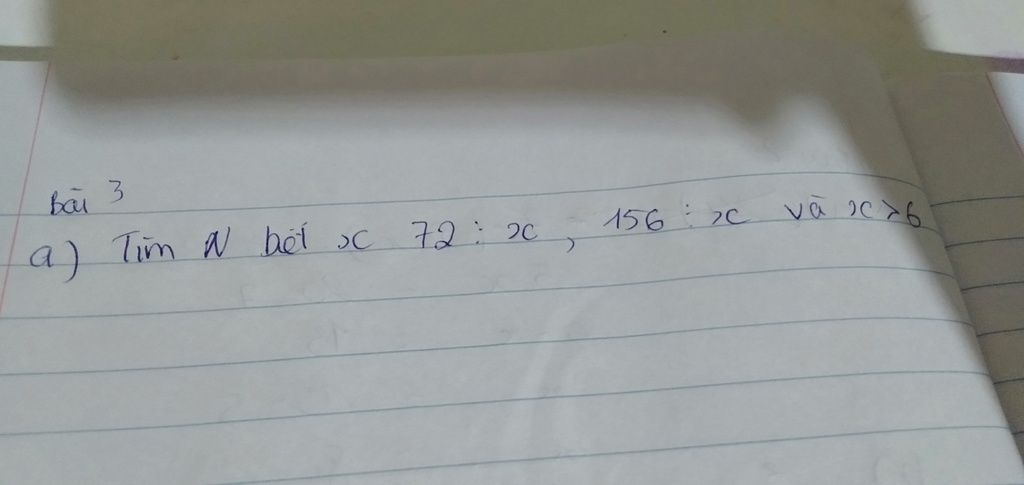 Bài 3
a) Tìm N biết x 72 ⋮ x, 156 ⋮ x và x > 6